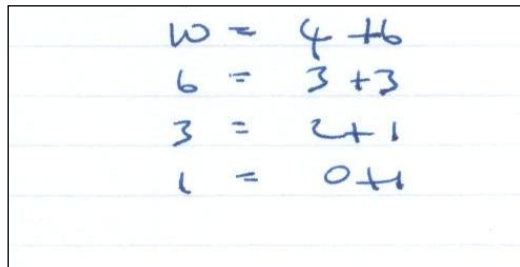 10 = 4 + 6
6 = 3 + 3
3 = 2 + 1
1 = 0 + 1